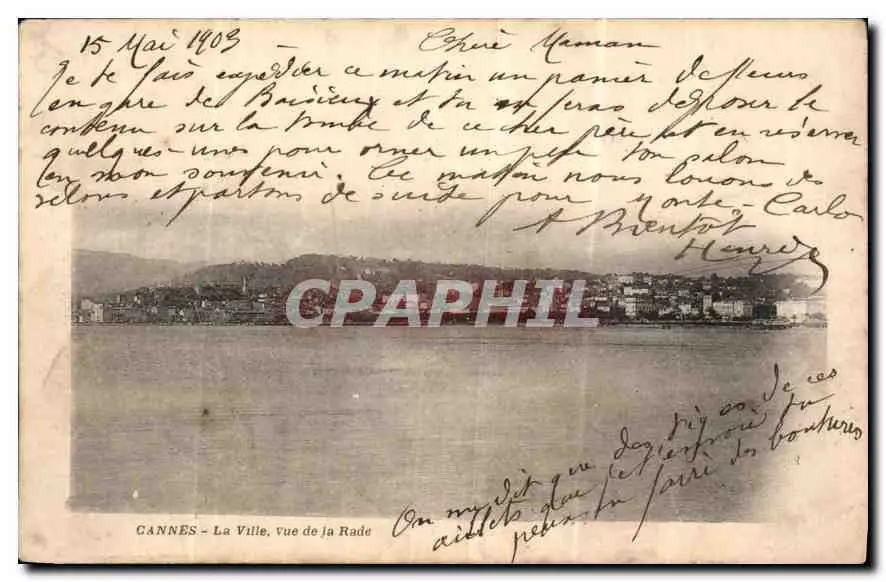 15 Mai 1903 - Chère Maman
Je te fais expédier ce matin un panier de fleurs
en gare de Baisieux et tu en feras déposer le
contenu sur la tombe de ce cher père et en réserver
quelques-unes pour orner un peu ton salon
en mon souvenir. Ce matin nous louons des
et partons de suite pour Monte-Carlo
A Bientôt
CPARAPHIL
On me dit que des tiges de ces
œillets que je t'envoie tu
peux en faire des boutures
CANNES - La Ville, vue de la Rade